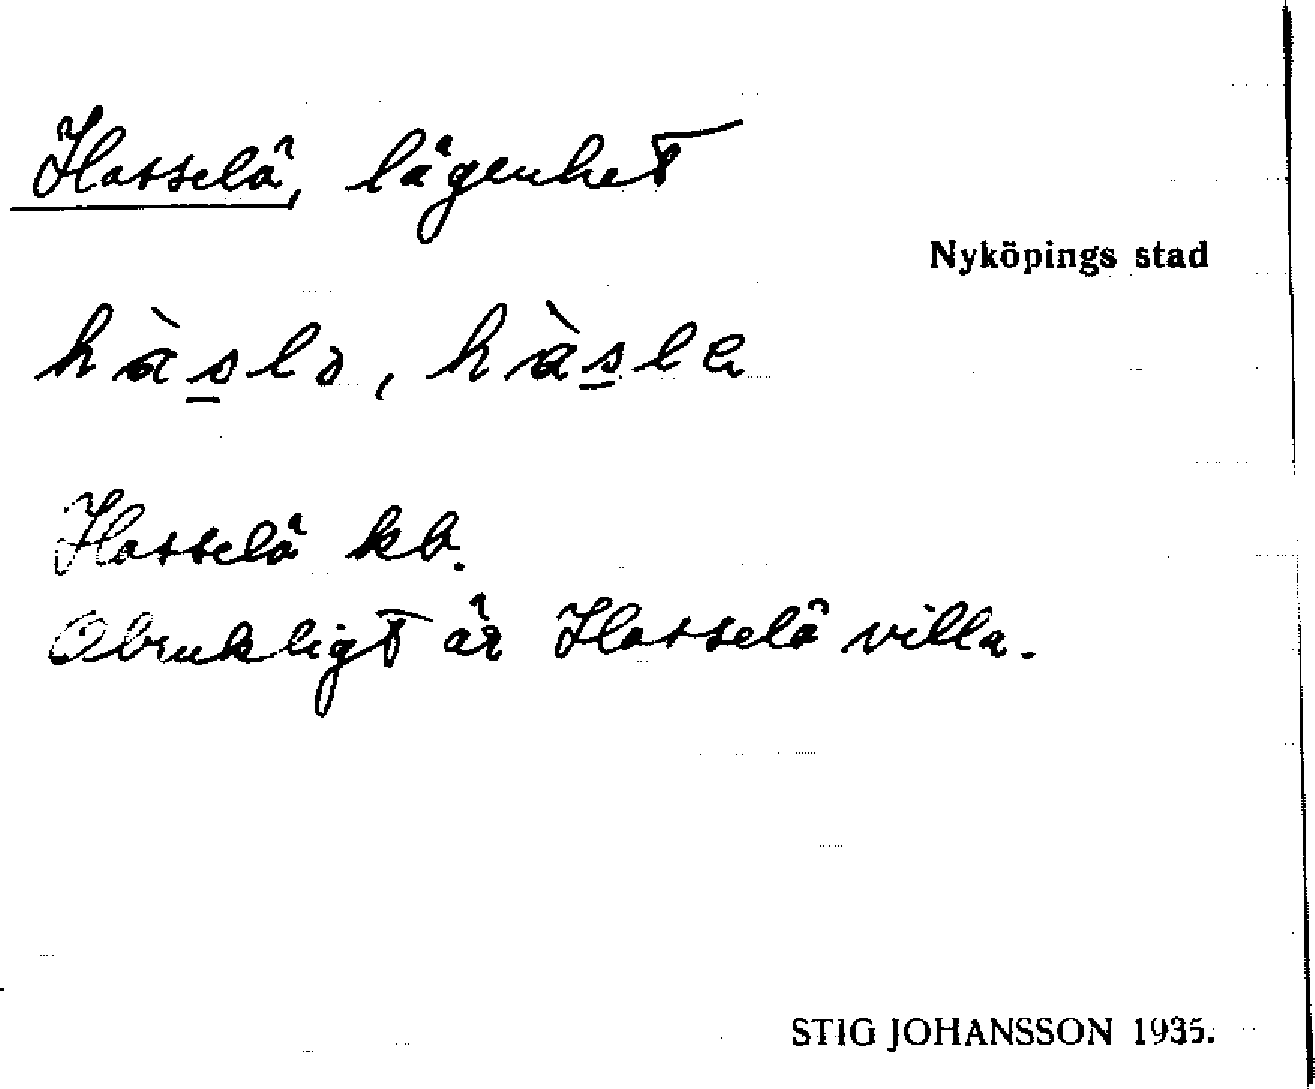 Hasselö, lägenhet
Nyköpings stad
hàslo, hàsle
Hasselö kb.
Obrukligt är Hasselö villa.
STIG JOHANSSON 1935.